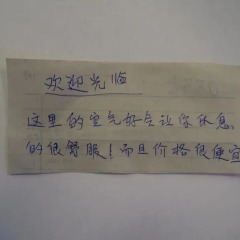 欢迎光临
这里的空气好会让你休息
的很舒服！而且价格很便宜